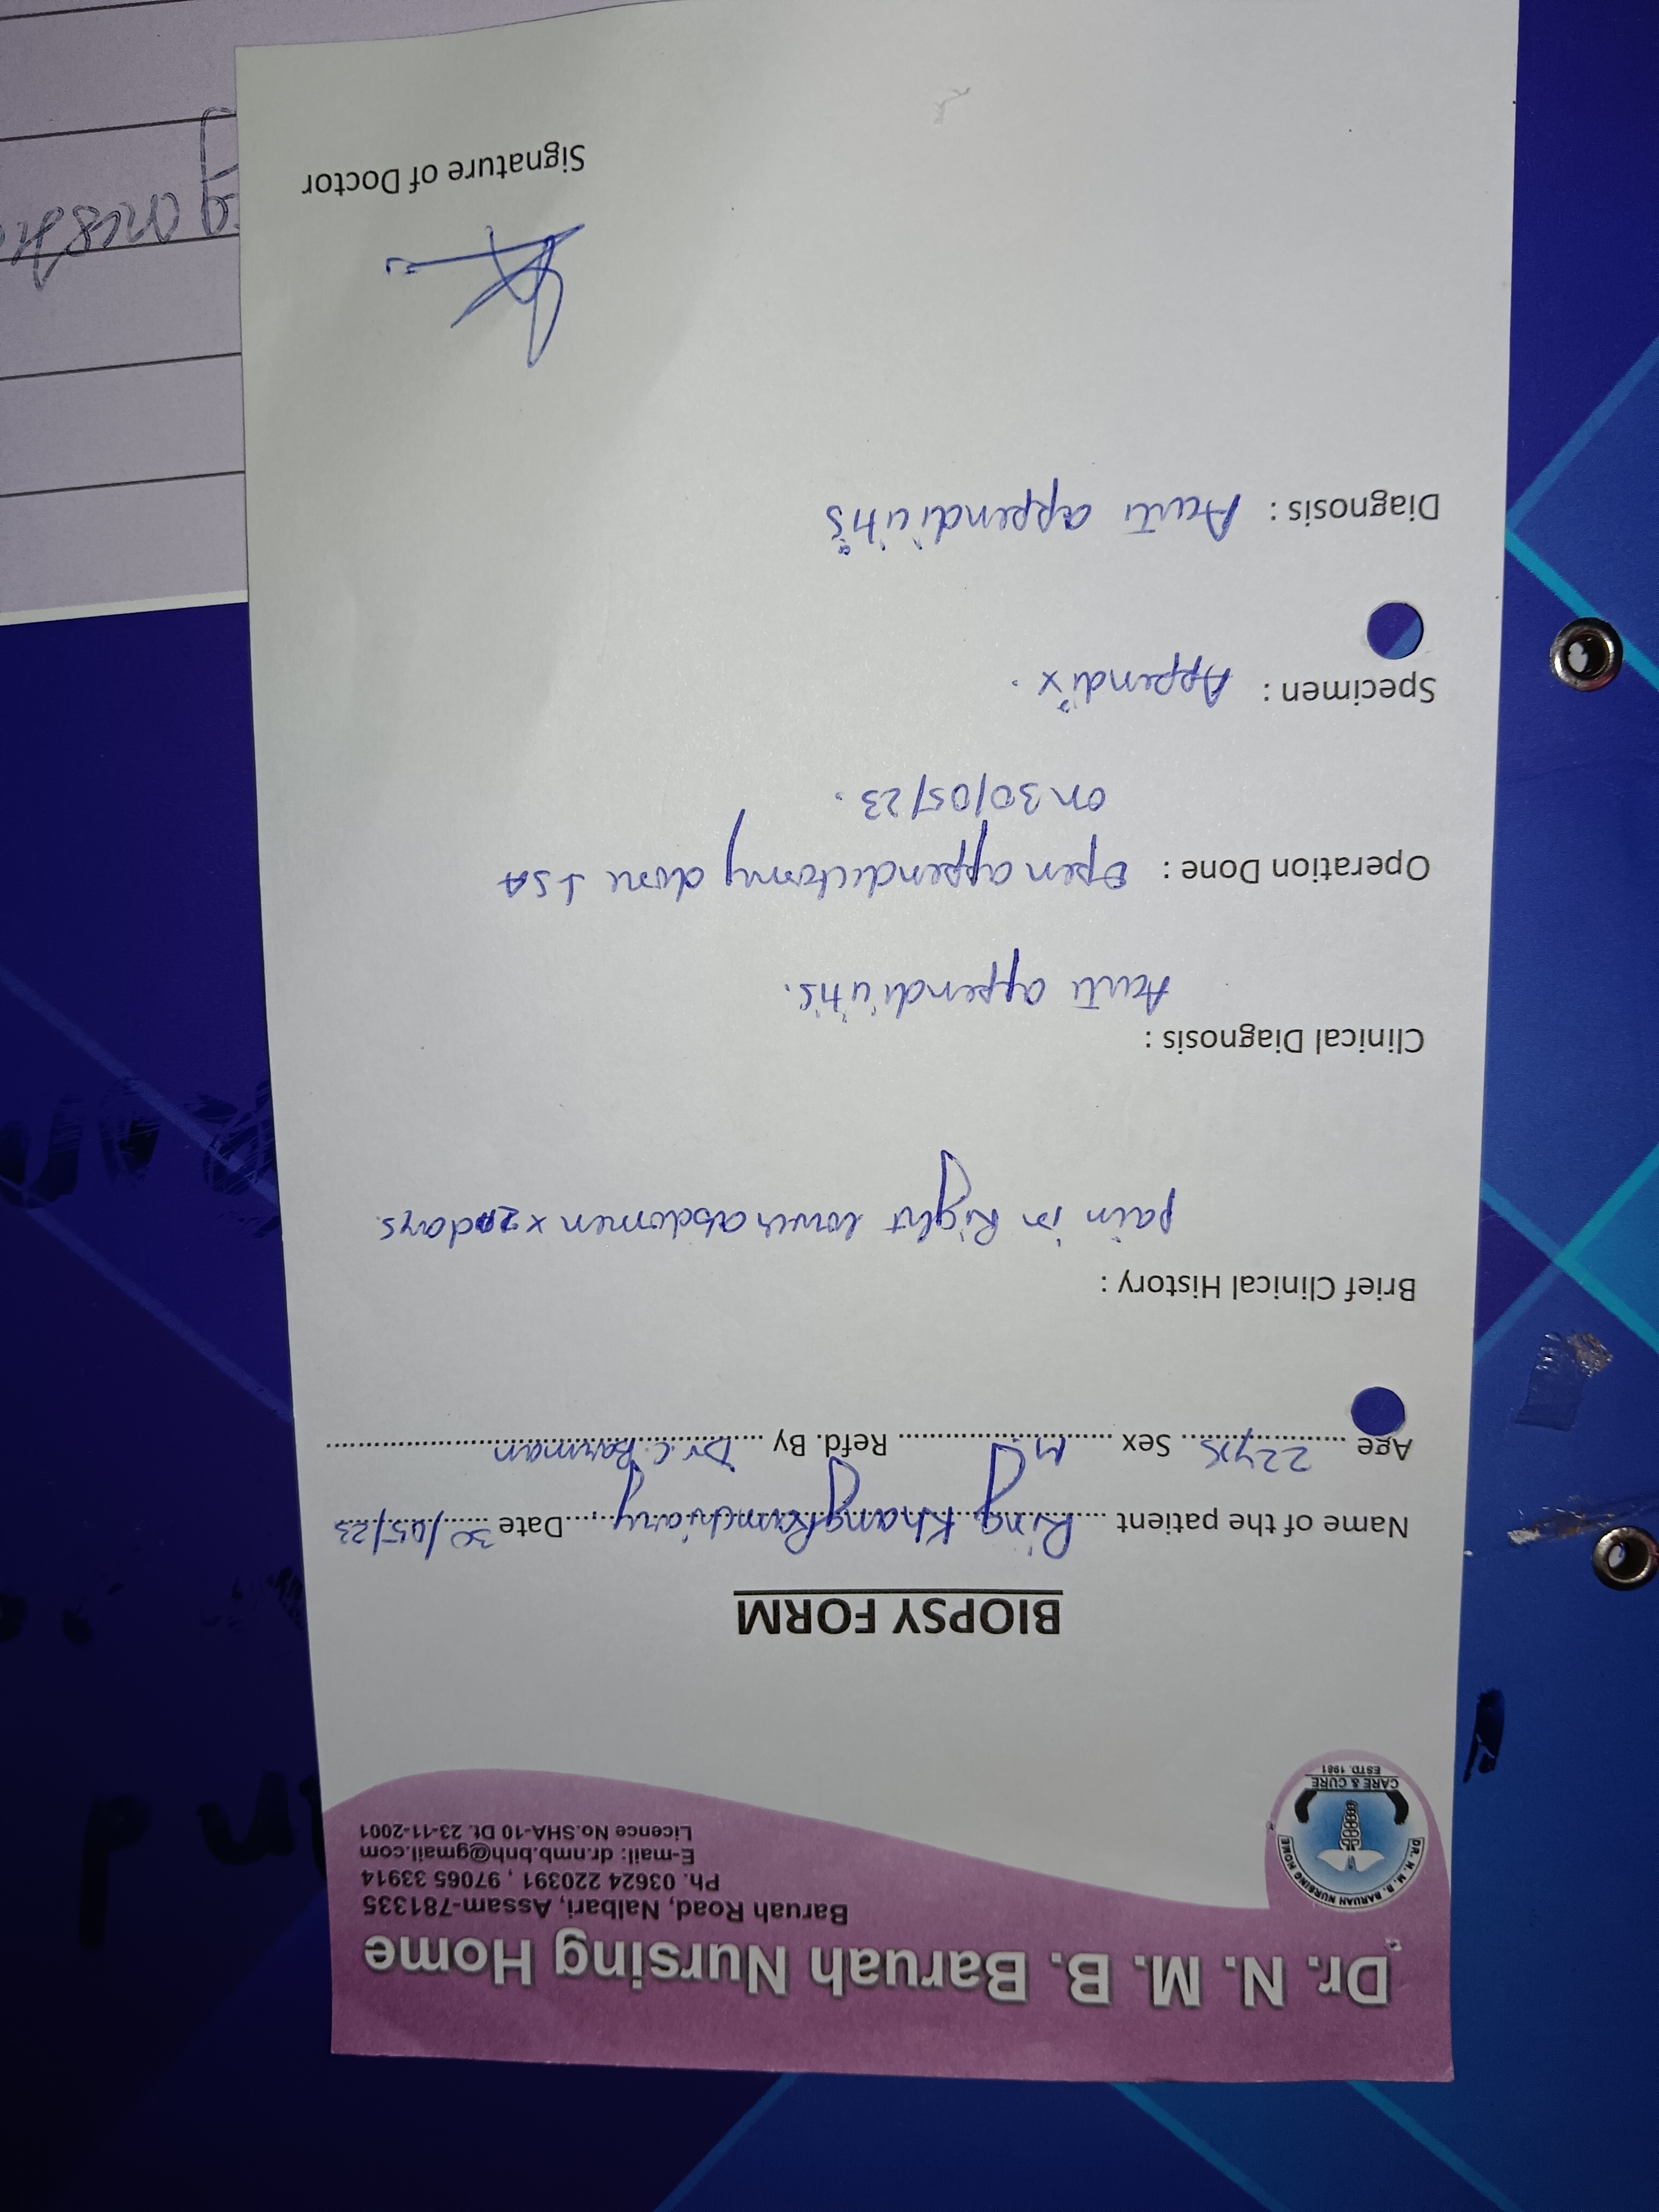 Dr. N. M. B. Baruah Nursing Home
Baruah Road, Nalbari, Assam-781335
Ph. 03624 220391 , 97065 33914
E-mail: dr.nmb.bnh@gmail.com
Licence No.SHA-10 Dt. 23-11-2001
DR. N. M. B. BARUAH NURSING HOME
CARE & CURE
ESTD. 1981
BIOPSY FORM
Name of the patient Ring Khang Ramchiary Date 30/05/23
Age 22yrs Sex M Refd. By Dr C. Barman
Brief Clinical History :
pain in Right lower abdomen x 2 days
Clinical Diagnosis :
Acute appendicitis.
Operation Done : Open appendectomy done ↓ SA
on 30/05/23.
Specimen : Appendix.
Diagnosis : Acute appendicitis
Signature of Doctor